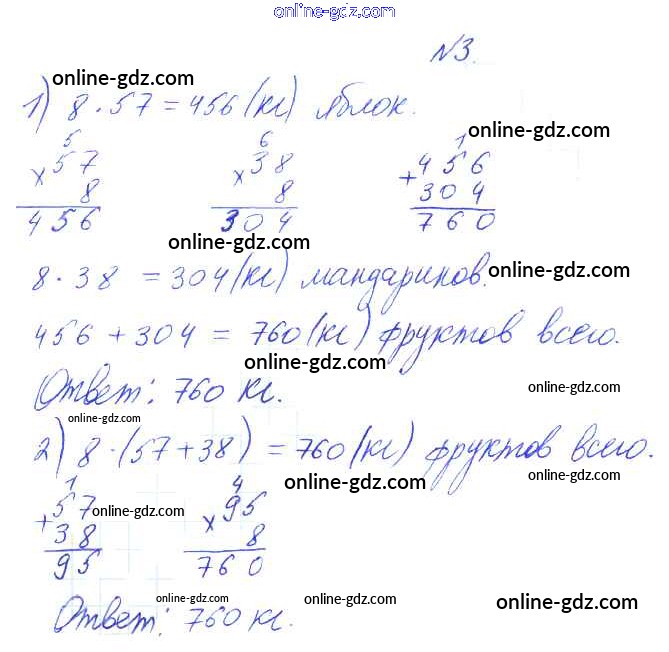 online-gdz.com
№3.
online-gdz.com
1) 8 · 57 = 456 (кг) яблок.
online-gdz.com
5 6 1
× 57 × 38 + 456
8 8 304
456 304 760
online-gdz.com
8 · 38 = 304 (кг) мандаринов.
online-gdz.com
456 + 304 = 760 (кг) фруктов всего.
online-gdz.com
Ответ: 760 кг.
online-gdz.com
online-gdz.com
2) 8 · (57 + 38) = 760 (кг) фруктов всего.
online-gdz.com
online-gdz.com
1 4
+ 57 × 95
38 8
online-gdz.com
95 760
online-gdz.com
online-gdz.com
online-gdz.com
Ответ: 760 кг.